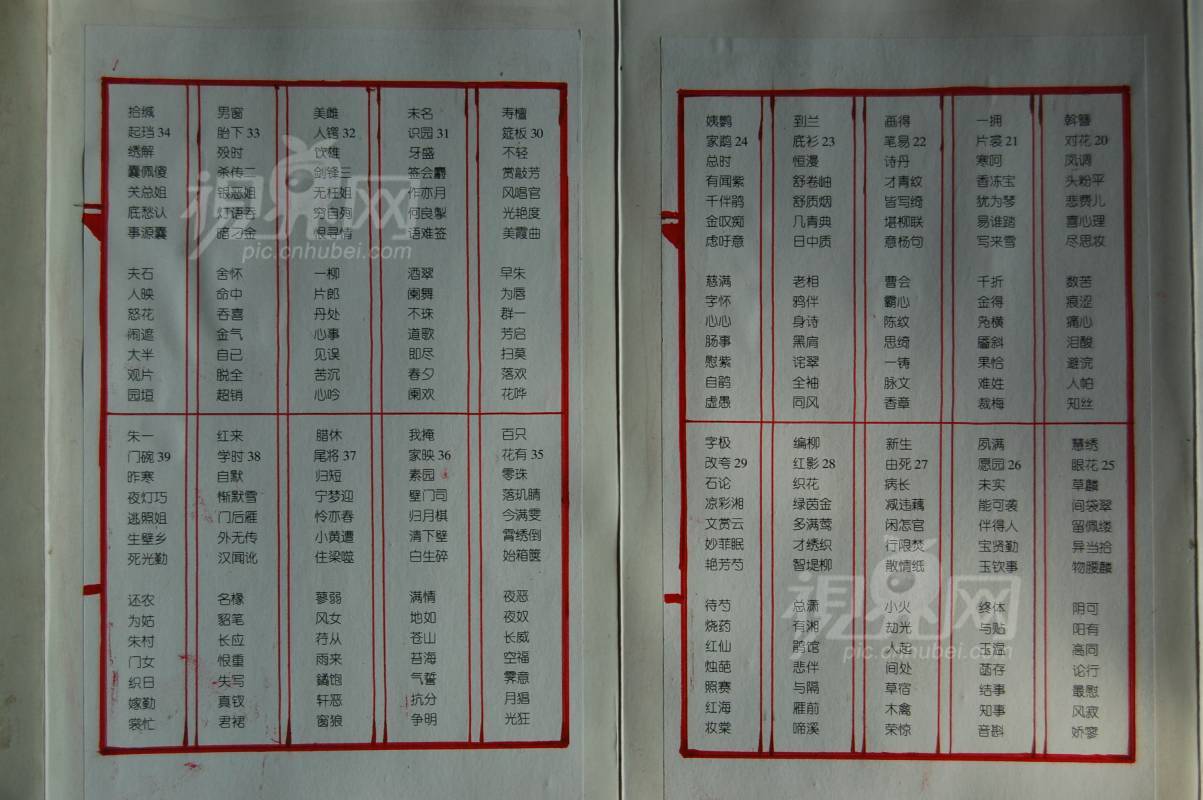 斡簪
对花 20
凤调
头粉平
悲费儿
喜心理
尽思妆
数苦
痕涩
痛心
泪酸
避浣
人帕
知丝
一拥
片裘 21
寒呵
香冻宝
犹为琴
易谁踏
写来雪
千折
金得
凫横
靥斜
果恰
难姓
裁梅
画得
笔易 22
诗丹
才青纹
皆写绮
堪柳联
意杨句
曹会
霸心
陈纹
思绮
一铸
脉文
香章
到兰
底衫 23
恒漫
舒卷岫
舒质烟
几青典
日中质
老相
鸦伴
身诗
黑肩
诧翠
全袖
同风
姨鹦
家鹉 24
总时
有闻紫
千伴鹃
金叹痴
虑吁意
慈满
字怀
心心
肠事
慰紫
自鹃
虚愚
慧绣
眼花 25
草麟
间袋翠
留佩缕
异当拾
物腰麟
阴可
阳有
高同
论行
最慰
风寂
娇寥
夙满
愿园 26
未实
能可袭
伴得人
宝贤勤
玉钦事
终体
与贴
玉温
菡存
结事
知事
音斟
新生
由死 27
病长
减违藕
闲怎官
行限焚
散情纸
小火
劫光
人起
间处
草宿
木禽
荣惊
编柳
红影 28
织花
绿茵金
多满莺
才绣织
智堤柳
总潇
有湘
鹃馆
悲伴
与隔
雁前
啼溪
字极
改夸 29
石论
凉彩湘
文赏云
妙菲眠
艳芳芍
待芍
烧药
红仙
烛葩
照赛
红海
妆棠
寿檀
筵板 30
不轻
赏敲芳
风唱官
光艳度
美霞曲
早朱
为唇
群一
芳启
扫莫
落欢
花哗
未名
识园 31
牙盛
签会麝
作亦月
何良掣
语难签
酒翠
阑舞
不珠
道歌
即尽
春夕
阑欢
美雌
人锷 32
饮雄
剑锋三
无枉姐
穷自殉
恨寻情
一柳
片郎
丹处
心事
见误
苦沉
心吟
男窗
胎下 33
殁时
杀传二
银恶姐
灯语吞
暗刁金
舍怀
命中
吞喜
金气
自已
脱全
超销
拾缄
起珰 34
绣解
囊佩傻
关总姐
底愁认
事源囊
夫石
人映
怒花
闹遮
大半
观片
园垣
百只
花有 35
零珠
落玑睛
今满雯
霄绣倒
始箱箧
夜恶
夜奴
长威
空福
霁意
月猖
光狂
我掩
家映 36
素园
壁门司
归月棋
清下壁
白生碎
满情
地如
苍山
苔海
气誓
抗分
争明
腊休
尾将 37
归短
宁梦迎
怜亦春
小黄遭
住梁噬
蓼弱
风女
荇从
雨来
鐍饱
轩恶
窗狼
红来
学时 38
自默
惭默雪
门后雁
外无传
汉闻讹
名椽
貂笔
长应
恨重
失写
真钗
君裙
朱一
门碗 39
昨寒
夜灯巧
逃照姐
生壁乡
死光勤
还农
为姑
朱村
门女
织日
嫁勤
裳忙
视界网
pic.cnhubei.com
视界网
pic.cnhubei.com